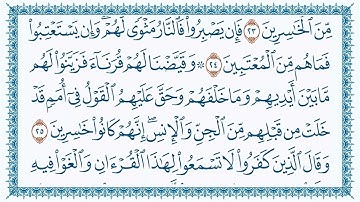 مِّنَ ٱلْخَٰسِرِينَ ٢٣ فَإِن يَصْبِرُوا۟ فَٱلنَّارُ مَثْوًى لَّهُمْ ۖ وَإِن يَسْتَعْتِبُوا۟
فَمَا هُم مِّنَ ٱلْمُعْتَبِينَ ٢٤ ۞ وَقَيَّضْنَا لَهُمْ قُرَنَآءَ فَزَيَّنُوا۟ لَهُم
مَّا بَيْنَ أَيْدِيهِمْ وَمَا خَلْفَهُمْ وَحَقَّ عَلَيْهِمُ ٱلْقَوْلُ فِىٓ أُمَمٍ قَدْ
خَلَتْ مِن قَبْلِهِم مِّنَ ٱلْجِنِّ وَٱلْإِنسِ ۖ إِنَّهُمْ كَانُوا۟ خَٰسِرِينَ ٢٥
وَقَالَ ٱلَّذِينَ كَفَرُوا۟ لَا تَسْمَعُوا۟ لِهَٰذَا ٱلْقُرْءَانِ وَٱلْغَوْا۟ فِيهِ